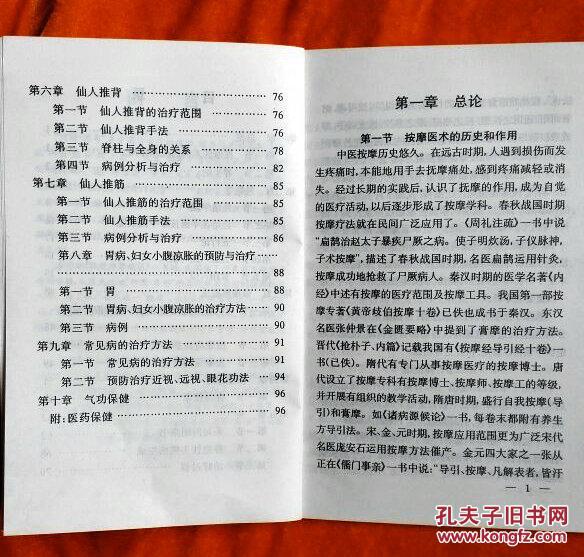 第六章 仙人推背 …………………… 76
第一节 仙人推背的治疗范围 …………… 76
第二节 仙人推背手法 …………………… 76
第三节 脊柱与全身的关系 ……………… 78
第四节 病例分析与治疗 ………………… 82
第七章 仙人推筋 …………………… 85
第一节 仙人推筋的治疗范围 …………… 85
第二节 仙人推筋手法 …………………… 85
第三节 病例分析与治疗 ………………… 86
第八章 胃病、妇女小腹凉胀的预防与治疗 ……
…………………… 88
第一节 胃 …………………… 88
第二节 胃病、妇女小腹凉胀的治疗方法 …… 90
第三节 病例 …………………… 90
第九章 常见病的治疗方法 …………… 91
第一节 常见病的治疗方法 …………… 91
第二节 预防治疗近视、远视、眼花功法 …… 94
第十章 气功保健 …………………… 96
附:医药保健 …………………… 96
第一章 总论
第一节 按摩医术的历史和作用
中医按摩历史悠久。在远古时期,人遇到损伤而发
生疼痛时,本能地用手去抚摩痛处,感到疼痛减轻或消
失。经过长期的实践后,认识了抚摩的作用,成为自觉
的医疗活动,以后逐步形成了按摩学科。春秋战国时期
按摩疗法就在民间广泛应用了。《周礼注疏》一书中说
"扁鹊治赵太子暴疾尸厥之病。使子明炊汤,子仪脉神,
子术按摩",描述了春秋战国时期,名医扁鹊运用针灸、
按摩成功地抢救了尸厥病人。秦汉时期的医学名著《内
经》中述有按摩的医疗范围及按摩工具。我国第一部按
摩专著《黄帝歧伯按摩十卷》已佚也成书于秦汉。东汉
名医张仲景在《金匮要略》中提到了膏摩的治疗方法。
晋代《抢朴子、内篇》记载我国有《按摩经导引经十卷》一
书(已佚)。隋代有专门从事按摩医疗的按摩博士。唐
代设立了按摩专科有按摩博士、按摩师、按摩工的等级,
并开展有组织的教学活动,隋唐时期,盛行自我按摩(导
引)和膏摩。如《诸病源候论》一书,每卷末都附有养生
方导引法。宋、金、元时期,按摩应用范围更为广泛宋代
名医庞安石运用按摩方法催产。金元四大家之一张从
正在《儒门事亲》一书中说:"导引、按摩、凡解表者,皆汗
— 1 —
孔夫子旧书网